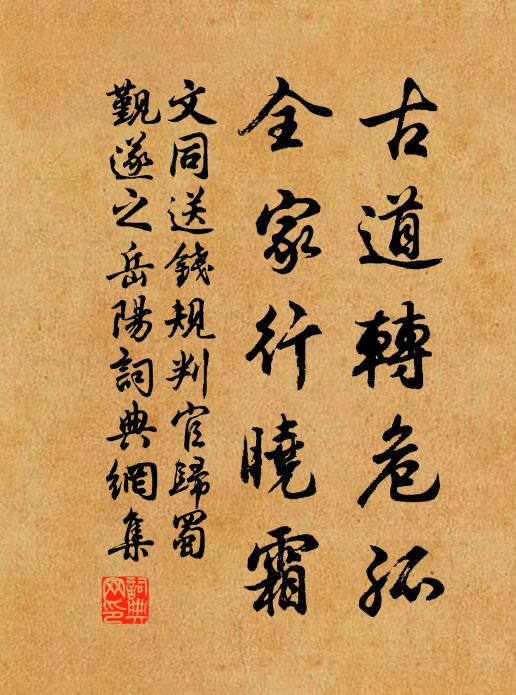 古道轉危孤
全家行曉霜
文同送錢規判官歸蜀
覲遂之岳陽詞典網集
詞典网印